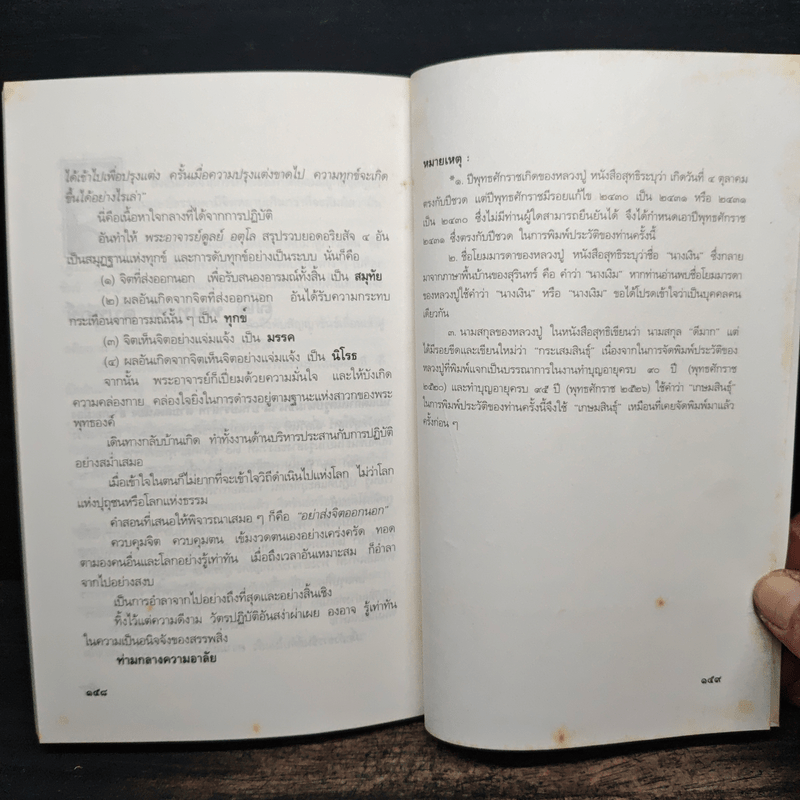 ได้เข้าไปเพื่อปรุงแต่ง ครั้นเมื่อความปรุงแต่งขาดไป ความทุกข์จะเกิด
ขึ้นได้อย่างไรเล่า"
นี่คือเนื้อหาใจกลางที่ได้จากการปฏิบัติ
อันทำให้ พระอาจารย์ดูลย์ อตุโล สรุปรวบยอดอริยสัจ ๔ อัน
เป็นสมุฏฐานแห่งทุกข์ และการดับทุกข์อย่างเป็นระบบ นั่นก็คือ
(๑) จิตที่ส่งออกนอก เพื่อรับสนองอารมณ์ทั้งสิ้น เป็น สมุทัย
(๒) ผลอันเกิดจากจิตที่ส่งออกนอก อันได้รับความกระทบ
กระเทือนจากอารมณ์นั้น ๆ เป็น ทุกข์
(๓) จิตเห็นจิตอย่างแจ่มแจ้ง เป็น มรรค
(๔) ผลอันเกิดจากจิตเห็นจิตอย่างแจ่มแจ้ง เป็น นิโรธ
จากนั้น พระอาจารย์ก็เปี่ยมด้วยความมั่นใจ และให้บังเกิด
ความคล่องกาย คล่องใจยิ่งในการดำรงอยู่ตามฐานะแห่งสาวกของพระ
พุทธองค์
เดินทางกลับบ้านเกิด ทำทั้งงานด้านบริหารประสานกับการปฏิบัติ
อย่างสม่ำเสมอ
เมื่อเข้าใจในตนก็ไม่ยากที่จะเข้าใจวิถีดำเนินไปแห่งโลก ไม่ว่าโลก
แห่งปุถุชนหรือโลกแห่งธรรม
คำสอนที่เสนอให้พิจารณาเสมอ ๆ ก็คือ "อย่าส่งจิตออกนอก"
ควบคุมจิต ควบคุมตน เข้มงวดตนเองอย่างเคร่งครัด ทอด
ตามองคนอื่นและโลกอย่างรู้เท่าทัน เมื่อถึงเวลาอันเหมาะสม ก็อำลา
จากไปอย่างสงบ
เป็นการอำลาจากไปอย่างถึงที่สุดและอย่างสิ้นเชิง
ทิ้งไว้แต่ความดีงาม วัตรปฏิบัติอันสง่าผ่าเผย องอาจ รู้เท่าทัน
ในความเป็นอนิจจังของสรรพสิ่ง
ท่ามกลางความอาลัย
๑๔๘
หมายเหตุ :
*๑. ปีพุทธศักราชเกิดของหลวงปู่ หนังสือสุทธิระบุว่า เกิดวันที่ ๔ ตุลาคม
ตรงกับปีชวด แต่ปีพุทธศักราชมีรอยแก้ไข ๒๔๓๐ เป็น ๒๔๓๑ หรือ ๒๔๓๑
เป็น ๒๔๓๐ ซึ่งไม่มีท่านผู้ใดสามารถยืนยันได้ จึงได้กำหนดเอาปีพุทธศักราช
๒๔๓๑ ซึ่งตรงกับปีชวด ในการพิมพ์ประวัติของท่านครั้งนี้
๒. ชื่อโยมมารดาของหลวงปู่ หนังสือสุทธิระบุว่าชื่อ "นางเงิน" ซึ่งกลาย
มาจากภาษาพื้นบ้านของสุรินทร์ คือ คำว่า "นางเงิม" หากท่านอ่านพบชื่อโยมมารดา
ของหลวงปู่ใช้คำว่า "นางเงิน" หรือ "นางเงิม" ขอได้โปรดเข้าใจว่าเป็นบุคคลคน
เดียวกัน
๓. นามสกุลของหลวงปู่ ในหนังสือสุทธิเขียนว่า นามสกุล "ดีมาก" แต่
ได้มีรอยขีดและเขียนใหม่ว่า "กระเสมสินธุ์" เนื่องจากในการจัดพิมพ์ประวัติของ
หลวงปู่ที่พิมพ์แจกเป็นบรรณาการในงานทำบุญอายุครบ ๙๐ ปี (พุทธศักราช
๒๕๒๐) และทำบุญอายุครบ ๙๕ ปี (พุทธศักราช ๒๕๒๖) ใช้คำว่า "เกษมสินธุ์"
ในการพิมพ์ประวัติของท่านครั้งนี้จึงใช้ "เกษมสินธุ์" เหมือนที่เคยจัดพิมพ์มาแล้ว
ครั้งก่อน ๆ
๑๔๙